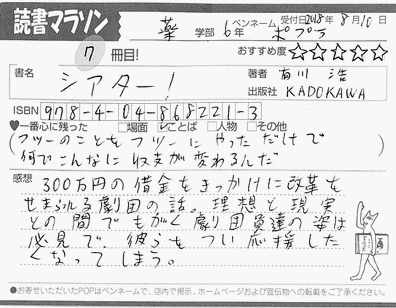 読書マラソン
薬 学部 6年 ペンネーム ポプラ 受付日 2018年8月10日
7 冊目! おすすめ度 ☆☆☆☆☆
書名 シアター! 著者 有川 浩
出版社 KADOKAWA
ISBN 978-4-04-868221-3
♥一番心に残った □場面 ☑ことば □人物 □その他
(フツーのことをフツーにやっただけで
何でこんなに収支が変わるんだ)
感想 300万円の借金をきっかけに改革を
せまられる劇団の話。理想と現実
との間でもがく劇団員達の姿は
必見で、彼らをつい応援した
くなってしまう。
●お寄せいただいたPOPはペンネームで、店内で掲示、ホームページおよび宣伝物への転載をご了承ください。